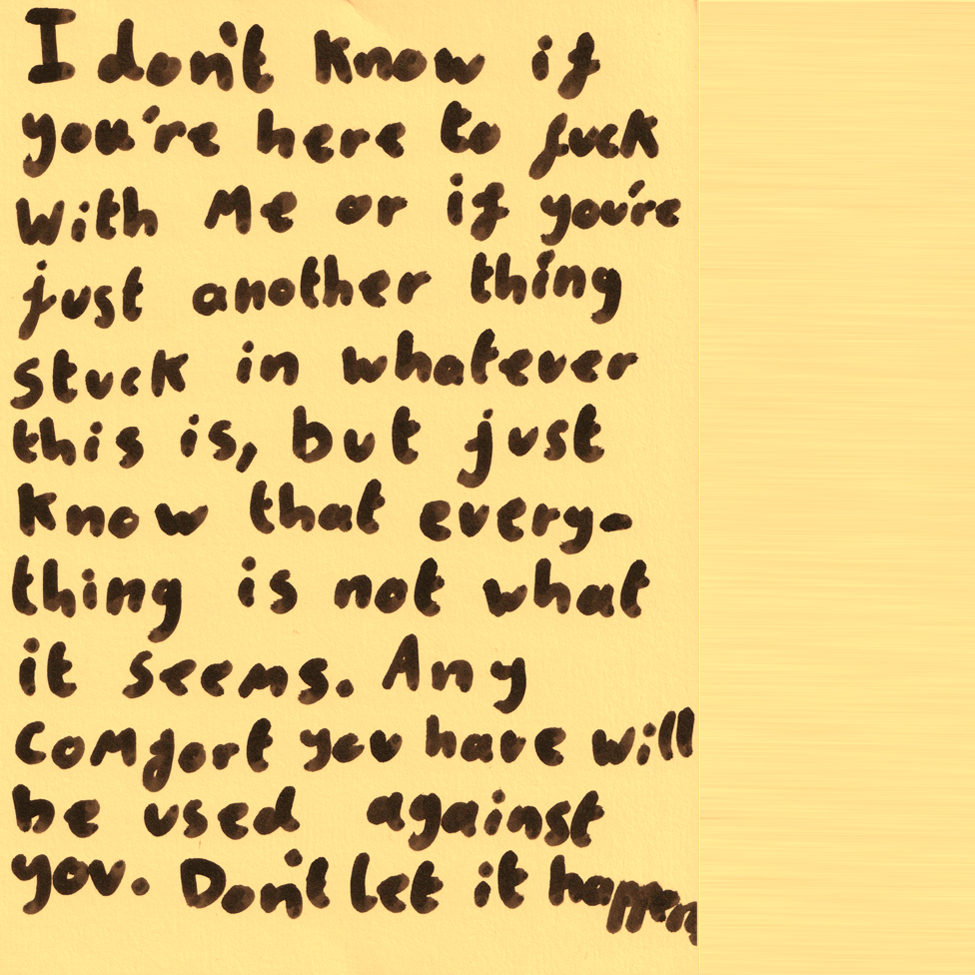 I don't know if
you're here to fuck
with Me or if you're
just another thing
stuck in whatever
this is, but just
know that every-
thing is not what
it seems. Any
Comfort you have will
be used against
you. Don't let it happen